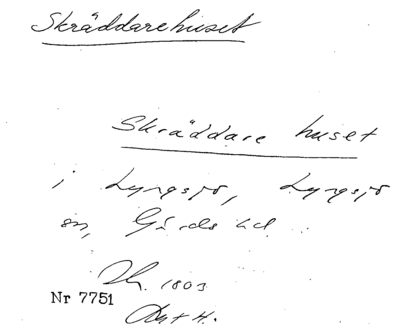 Skräddarehuset
Skräddare huset
i Lyngsjö, Lyngsjö
sn, Gärds hd.
1803
Nr 7751